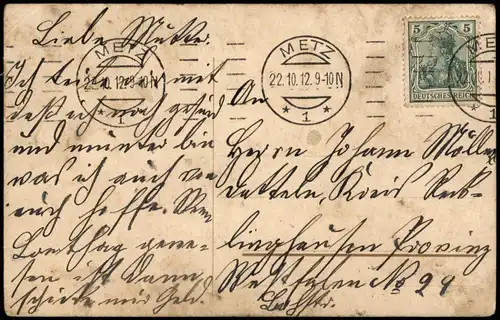 Liebe Mutter.
Ich teile mit
daß ich noch gesund
und munter bin
was ich auch von
euch hoffe. Wen
Lonthag gewe-
sen ist dann
schickt mir Geld.
METZ
22.10.12.9-10N
* 1 *
METZ
22.10.12.9-10N
* 1 *
5 5
DEUTSCHES REICH
An
Herrn Johann Möller
Datteln, Kreis Reck-
linghausen Provinz
Westfalen No 29